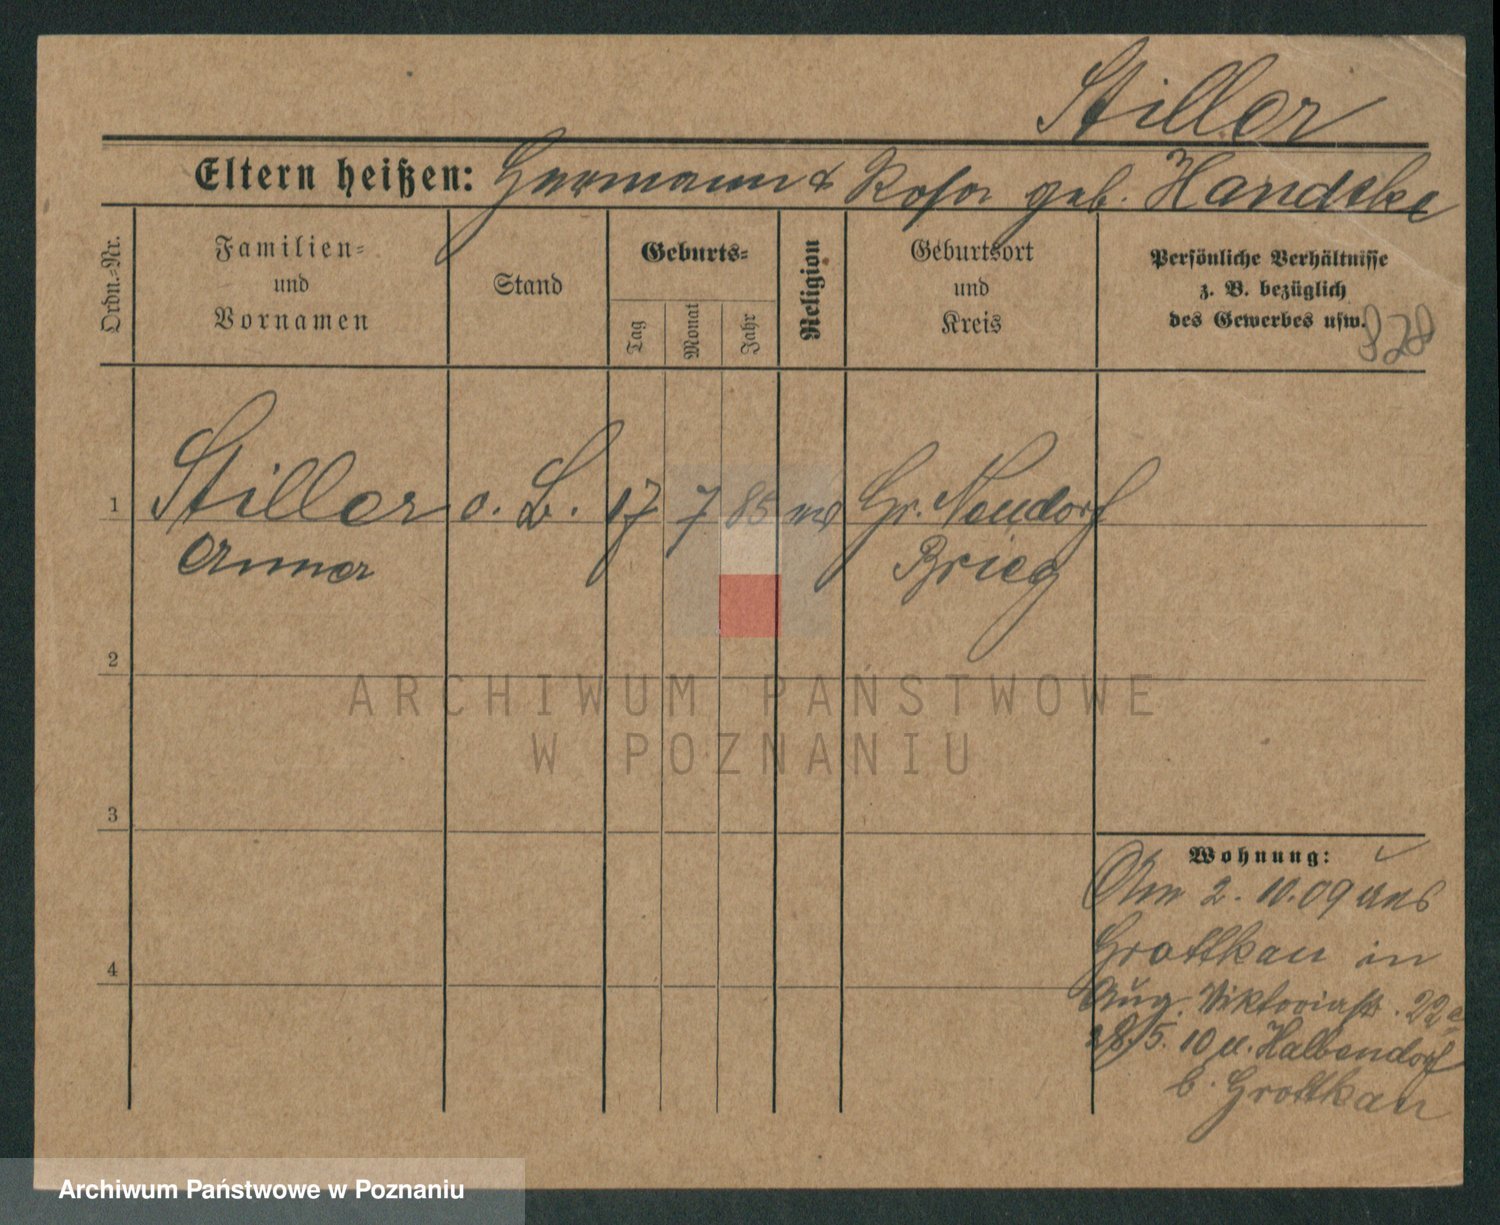 Stiller
Eltern heißen: Hermann & Rosa geb. Handtke
Ordn.-Nr.
Familien-
und
Vornamen
Stand
Geburts-
Tag
Monat
Jahr
Religion
Geburtsort
und
Kreis
Persönliche Verhältnisse
z. B. bezüglich
des Gewerbes usw.
828
1 Stiller o. B. 17 7 85 Gr. Neudorf
Anna Brieg
2
3
4
Wohnung:
Am 2. 10. 09 aus
Grottkau in
Aug. Viktoriastr. 22
28/5. 10 n. Halbendorf
b. Grottkau
ARCHIWUM PAŃSTWOWE
W POZNANIU
Archiwum Państwowe w Poznaniu